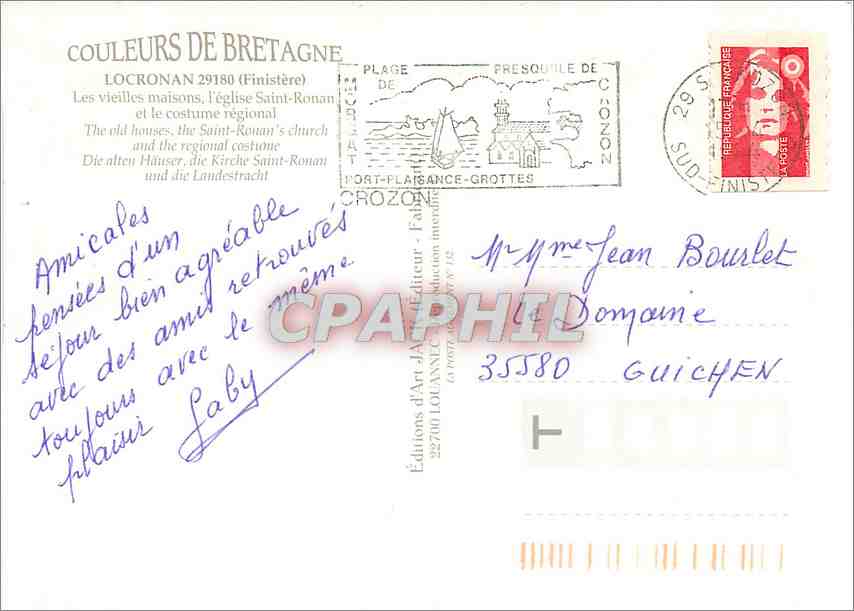 COULEURS DE BRETAGNE
LOCRONAN 29180 (Finistère)
Les vieilles maisons, l'église Saint-Ronan
et le costume régional
The old houses, the Saint-Ronan's church
and the regional costume
Die alten Häuser, die Kirche Saint-Ronan
und die Landestracht
PLAGE
DE
MORGAT
PRESQU'ILE DE
CROZON
PORT-PLAISANCE-GROTTES
CROZON
29
SUD FINIS
REPUBLIQUE FRANÇAISE
LA POSTE
Amicales
pensées d'un
séjour bien agréable
avec des amis retrouvés
toujours avec le même
plaisir Gaby
Mr Mme Jean Bourlet
Le Domaine
35580 GUICHEN
CPAPHIL
Éditions d'Art JACK (Éditeur - Fab
22700 LOUANNEC production interdite
LA POSTE
T